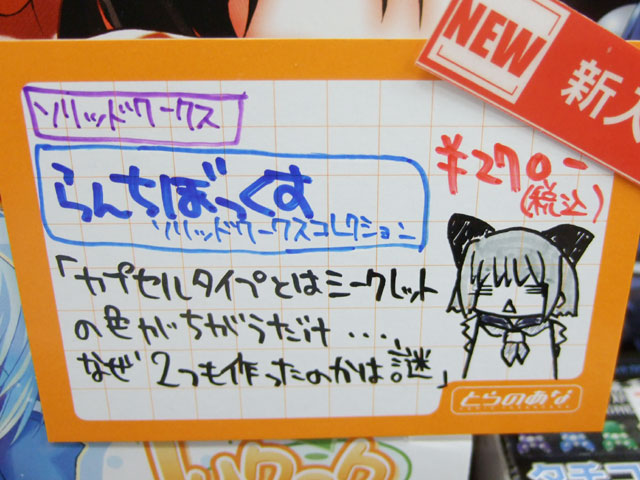 NEW
新入
ソリッドワークス
らんちぼっくす
ソリッドワークスコレクション
¥270-
(税込)
「カプセルタイプとはシークレット
の色がちがうだけ・・・、
なぜ2つも作ったのかは謎」
とらのあな